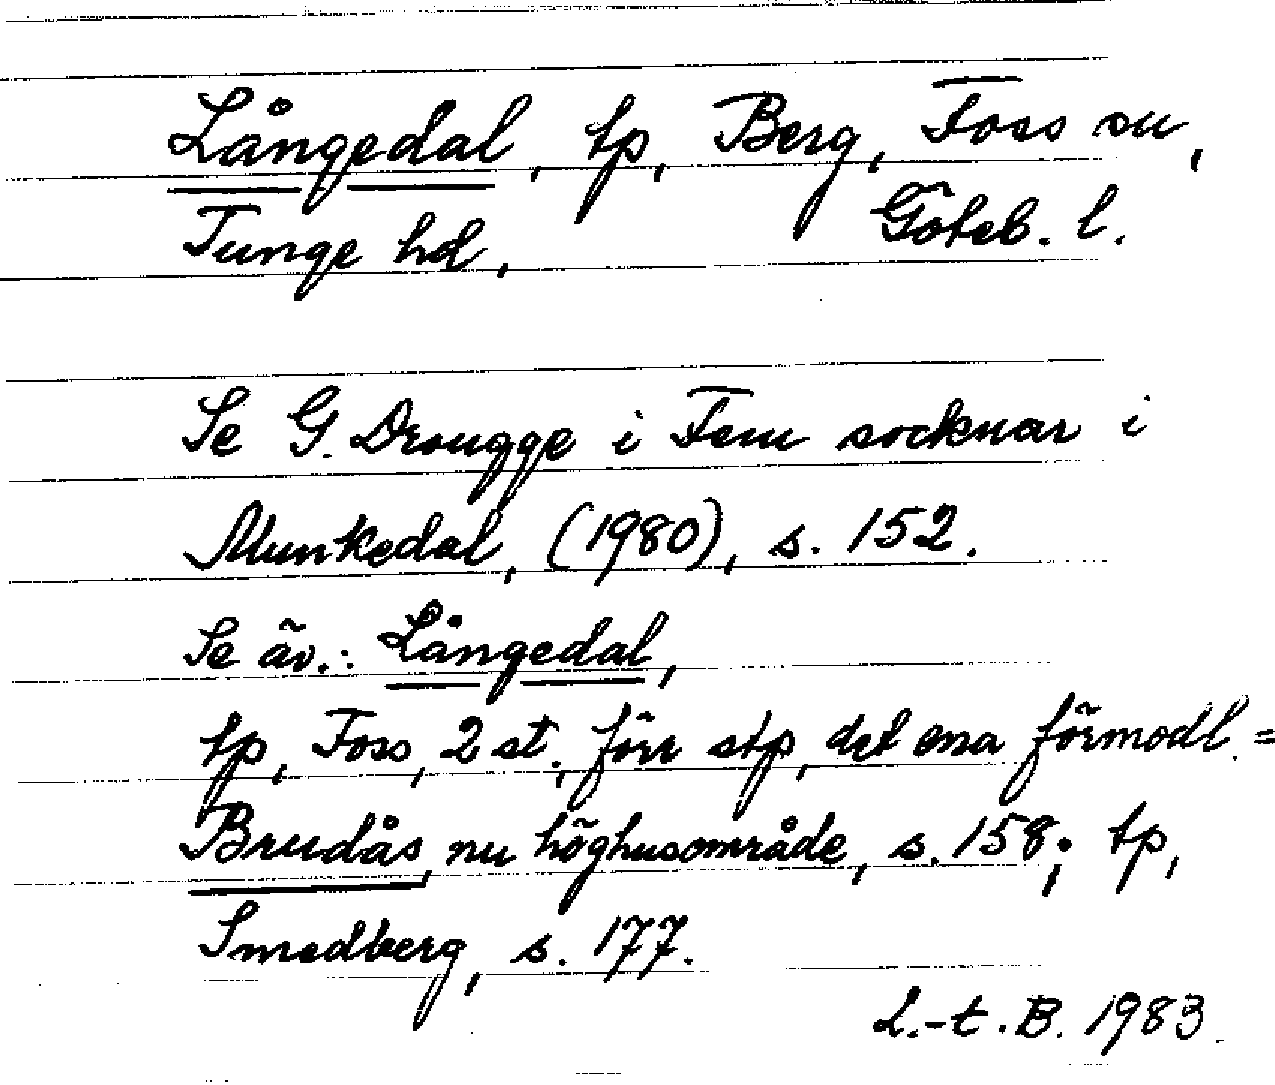 Långedal, tp, Berg, Foss sn,
Tunge hd, Göteb. l.
Se G. Drougge i Fem socknar i
Munkedal, (1980), s. 152.
Se äv.: Långedal,
tp, Foss, 2 st. förr stp, det ena förmodl. =
Brudås, nu höghusområde, s. 158; tp,
Smedberg, s. 177.
L.-t. B. 1983.